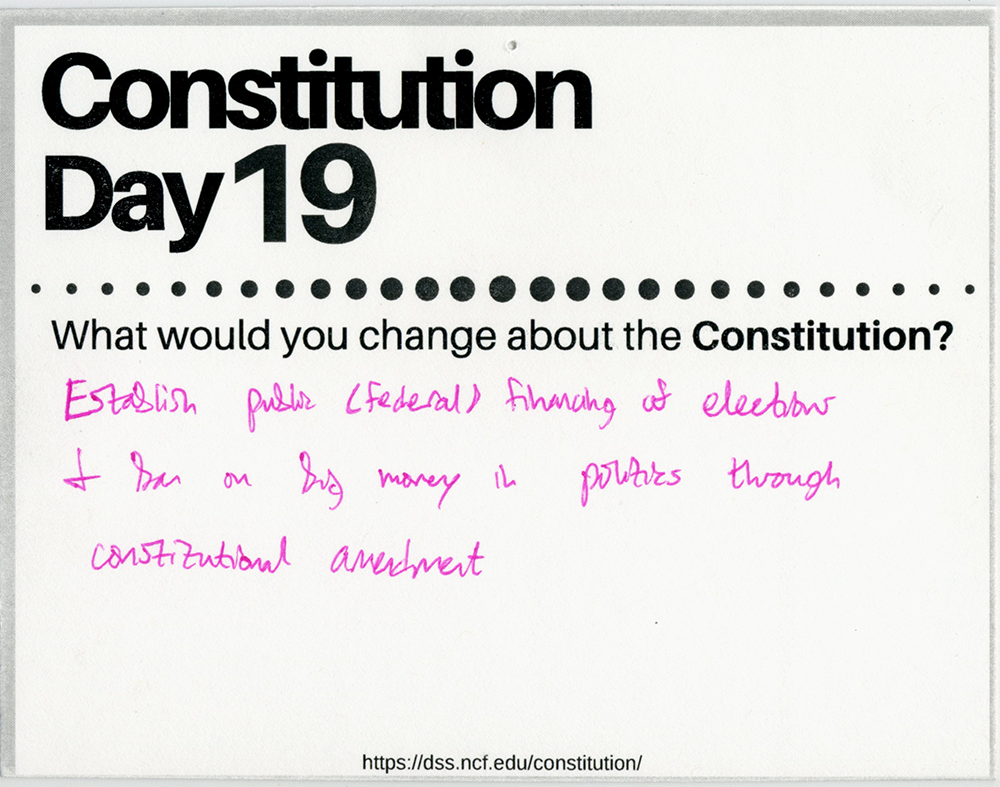 Constitution
Day 19
What would you change about the Constitution?
Establish public (federal) financing of elections
+ ban on big money in politics through
constitutional amendment
https://dss.ncf.edu/constitution/